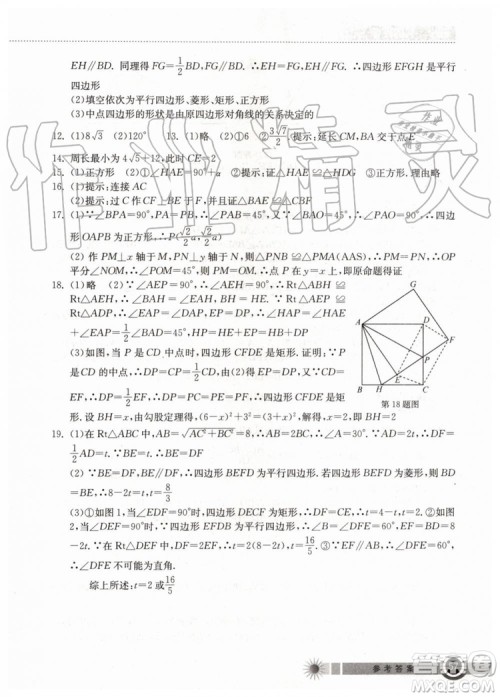 EH∥BD. 同理得 FG=1/2BD, EH=1/2BD. ∴EH=FG, EH∥FG. ∴四边形 EFGH 是平行
四边形
(2)填空依次为平行四边形、菱形、矩形、正方形
(3)中点四边形的形状是由原四边形对角线的关系决定的
12. (1)8√3 (2)120° 13. (1)略 (2)①6 ②3√7/2(提示:延长CF、AB交于点E
14. 周长最小为 4√5+12,此时 CE=2
15. (1)正方形 (2)①∠HAE=90°+α ②提示:证△HAE≌△HDG ③正方形. 理由略
16. (1)提示:连接 AC
(2)提示:过 C 作 CF⊥BE 于 F,并说明 CF=BF
17. (1)∵∠BPA=90°,PA=PB,∴∠PAB=45°. ∵∠BAO=45°,∴∠PAO=90°. ∴四边
形 OAPB 为正方形,∴P(√2/2a, √2/2a)
(2)作 PM⊥x 轴于 M, PN⊥y 轴于 N,可证△PNB≌△PMA(AAS),∴PM=PN. OP
平分∠NOM,∴∠POM=45°,则 PM=OM. ∴点 P 在 y=x 上,即原命题得证
18. (1)略 (2)∵∠AEP=90°,∴∠AEH=90°. ∵Rt△AHB≌
Rt△AEH,∴∠BAH=∠EAH=1/2∠BAE,HB=HE. 同理
∠EAP=1/2∠EAD, EP=DP. ∴∠HAP=∠EAH+∠EAP=
1/2∠BAD=45°,HP=HE+EP=HB+DP
(3)如图,当 P 是 CD 中点时,四边形 CFDE 是矩形. 证明:
∵P 是 CD 中点,∴DP=CP=1/2CD. ∴DP=PE=CP=1/2
EF,∴DP=PF=1/2EF,∴DP=CP=PE=PF. ∴四边形 CFDE 是矩
形. 设 BH=x,由勾股定理得:(6-x)²+3²=(3+x)²,解得 x=2,即 BH=2
A
B
H
C
D
E
F
G
P
第18题图
19. (1)在 Rt△ABC 中,AB=√AC²+BC²=60. ∵在 Rt△ADF 中,∠A=30°,∴DF=
1/2AD=t. ∵BE=t,∴BE=DF
(2)∵BE=DF,BE∥DF,∴四边形 BEFD 为平行四边形. 若四边形 BEFD 为菱形,则
BE=BD,∴8-2t=t,∴t=8/3
(3)①如图 1,当∠EDF=90°时,四边形 DECF 为矩形. ∴DF=EC. ∴t=4-t,t=2 ②如图
2,当∠DEF=90°时,∵四边形 EFDB 为平行四边形. ∴EF=BD,∠EFD=∠B=60°,EF=BD=8-
2t. ∵在 Rt△DEF 中,∠EDF=30°,∴EF=1/2DF=1/2t=8-2t,t=16/5 ③∵∠EDF<90°,
∴∠DFE 不可能为直角.
综上所述:t=2或16/5
参考答案
作业精灵